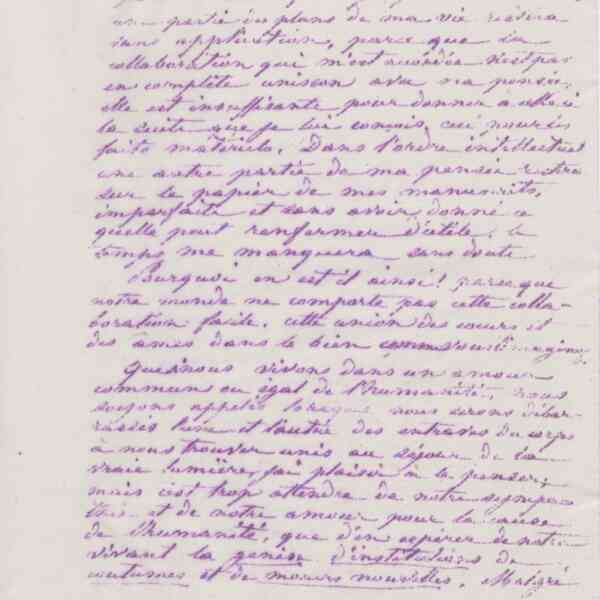 une partie du plans de ma vie restera
sans application, parce que la
collaboration qui m'est accordée n'est pas
en complète unison avec ma pensée,
elle est insuffisante pour donner à celle-ci
la suite que je lui conçois, ceci pour les
faits matériels. Dans l'ordre intellectuel
une autre partie de ma pensée restera
sur le papier de mes manuscrits,
imparfaite et sans avoir donné ce
quelle peut renfermer d'utile, le
temps me manquera sans doute.
Pourquoi en est il ainsi! parce que
notre monde ne comporte pas cette colla-
boration facile, cette union des cœurs et
des âmes dans le bien comme vous l'imaginez.
Que nous vivons dans un amour
commun ou égal de l'humanité, nous
soyons appelés lorsque nous serons débar-
rassés l'une et l'autre des entraves du corps
à nous trouver unis au séjour de la
vraie lumière, j'ai plaisir à le penser;
mais c'est trop attendre de notre sympa-
thie et de notre amour pour la cause
de l'humanité, que d'en espérer de notre
vivant la genèse d'institutions de
coutumes et de mœurs nouvelles. Malgré